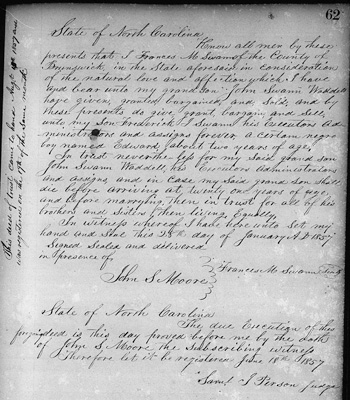 62
State of North Carolina
Know all men by these
presents that I Frances M Swann of the County of
Brunswick, in the State aforesaid in consideration
of the natural love and affection which I have
and bear unto my grand son John Swann Waddell
have given, granted bargained, and Sold, and by
these presents do give, grant, bargain and Sell,
unto my Son Frederick J Swann his executors Ad
ministrators and assigns forever a certain negro
boy named Edward about two years of age,
In trust never the less for my Said grand son
John Swann Waddell, his Executors Administrators
and assigns, and in case my Said grand son shall
die before arriving at twenty one years of age,
and before marrying, then in trust for all of his
brothers and Sisters then living Equally
In witness whereof I have here unto Set my
hand and Seal this 28th day of January A.D. 1857
Signed Sealed and delivered
in presence of
Frances M Swann
John S Moore
State of North Carolina
The due Execution of this
is this day proved before me by the oath
of John S Moore the Subscribing witness
Therefore let it be registered June 18th 1857
Saml J Person Judge
This deed of trust came to hand Augt 1857 and
was registered on the 17th of the Same month